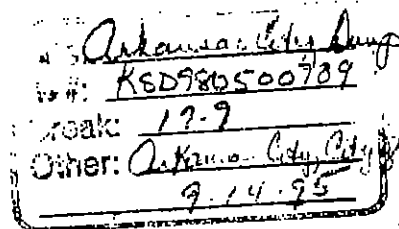 Arkansas City Dump
#: KSD980500789
Break: 17.9
Other: Arkansas City, City
9.14.95